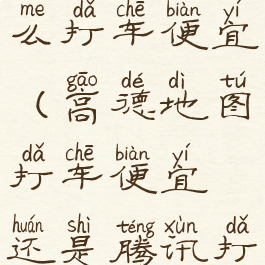 me dǎ chē biàn yí
么打车便宜
gāo dé dì tú
(高德地图
dǎ chē biàn yí
打车便宜
huán shì téng xùn dǎ
还是腾讯打